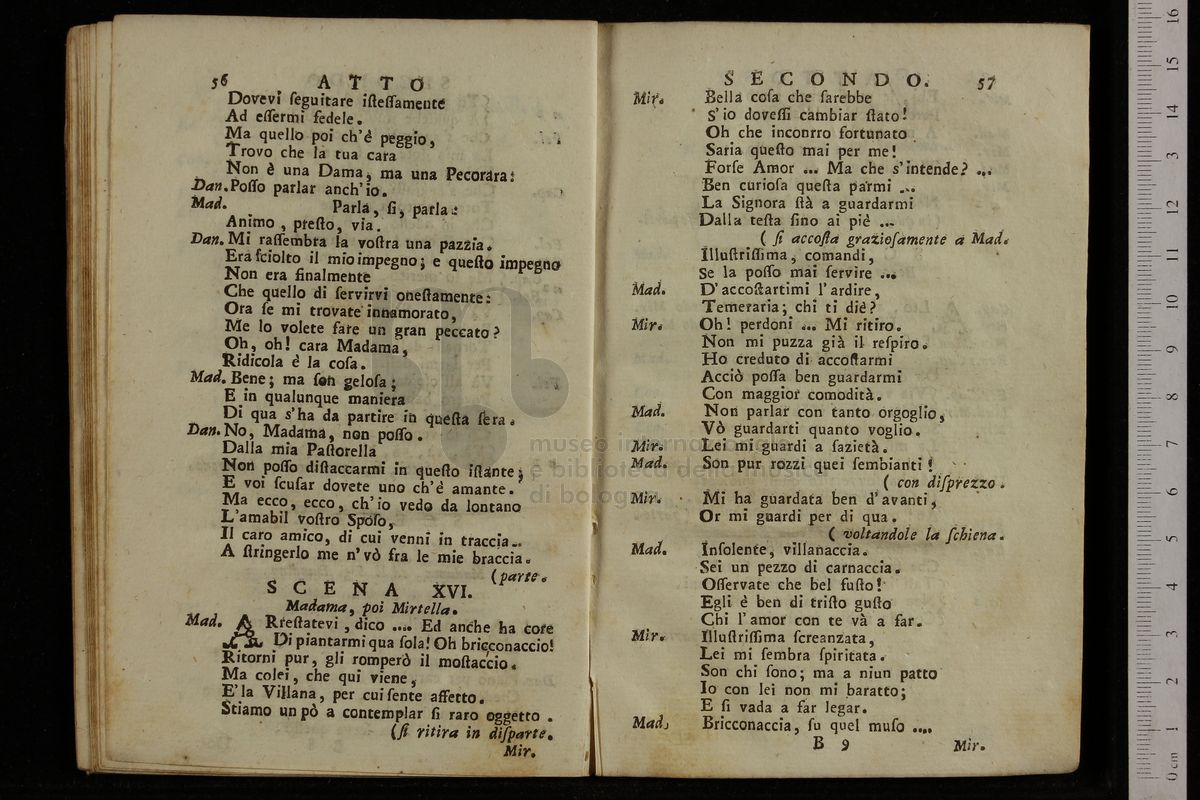 56 ATTO
Dovevi ſeguitare iſteſſamente
Ad eſſermi fedele.
Ma quello poi ch'è peggio,
Trovo che la tua cara
Non è una Dama, ma una Pecorara:
Dan. Poſſo parlar anch'io.
Mad. Parla, ſi, parla:
Animo, preſto, via.
Dan. Mi raſſembra la voſtra una pazzia.
Era ſciolto il mio impegno; e queſto impegno
Non era finalmente
Che quello di ſervirvi oneſtamente:
Ora ſe mi trovate innamorato,
Me lo volete fare un gran peccato?
Oh, oh! cara Madama,
Ridicola è la coſa.
Mad. Bene; ma ſon geloſa;
E in qualunque maniera
Di qua s'ha da partire in queſta ſera.
Dan. No, Madama, non poſſo.
Dalla mia Paſtorella
Non poſſo diſtaccarmi in queſto iſtante;
E voi ſcuſar dovete uno ch'è amante.
Ma ecco, ecco, ch'io vedo da lontano
L'amabil voſtro Spoſo,
Il caro amico, di cui venni in traccia..
A ſtringerlo me n'vò fra le mie braccia.
(parte.
SCENA XVI.
Madama, poi Mirtella.
Mad. ARreſtatevi, dico .... Ed anche ha core
Di piantarmi qua ſola! Oh bricconaccio!
Ritorni pur, gli romperò il moſtaccio.
Ma colei, che qui viene,
E' la Villana, per cui ſente affetto.
Stiamo un pò a contemplar ſi raro oggetto.
(ſi ritira in diſparte.
Mir.
SECONDO. 57
Mir. Bella coſa che ſarebbe
S'io doveſſi cambiar ſtato!
Oh che inconrro fortunato
Saria queſto mai per me!
Forſe Amor ... Ma che s'intende? ...
Ben curioſa queſta parmi ...
La Signora ſtà a guardarmi
Dalla teſta fino ai piè ...
( ſi accoſta grazioſamente a Mad.
Illuſtriſſima, comandi,
Se la poſſo mai ſervire ...
Mad. D'accoſtartimi l'ardire,
Temeraria; chi ti diè?
Mir. Oh! perdoni ... Mi ritiro.
Non mi puzza già il reſpiro.
Ho creduto di accoſtarmi
Acciò poſſa ben guardarmi
Con maggior comodità.
Mad. Non parlar con tanto orgoglio,
Vò guardarti quanto voglio.
Mir. Lei mi guardi a ſazietà.
Mad. Son pur rozzi quei ſembianti!
( con diſprezzo.
Mir. Mi ha guardata ben d'avanti,
Or mi guardi per di qua.
( voltandole la ſchiena.
Mad. Inſolente, villanaccia.
Sei un pezzo di carnaccia.
Oſſervate che bel fuſto!
Egli è ben di triſto guſto
Chi l'amor con te và a far.
Mir. Illuſtriſſima ſcreanzata,
Lei mi ſembra ſpiritata.
Son chi ſono; ma a niun patto
Io con lei non mi baratto;
E ſi vada a far legar.
Mad, Bricconaccia, ſu quel muſo ....
B 9 Mir.
museo internazionale
e biblioteca della musica
di bologna
0 cm 1 2 3 4 5 6 7 8 9 10 11 12 13 14 15 16